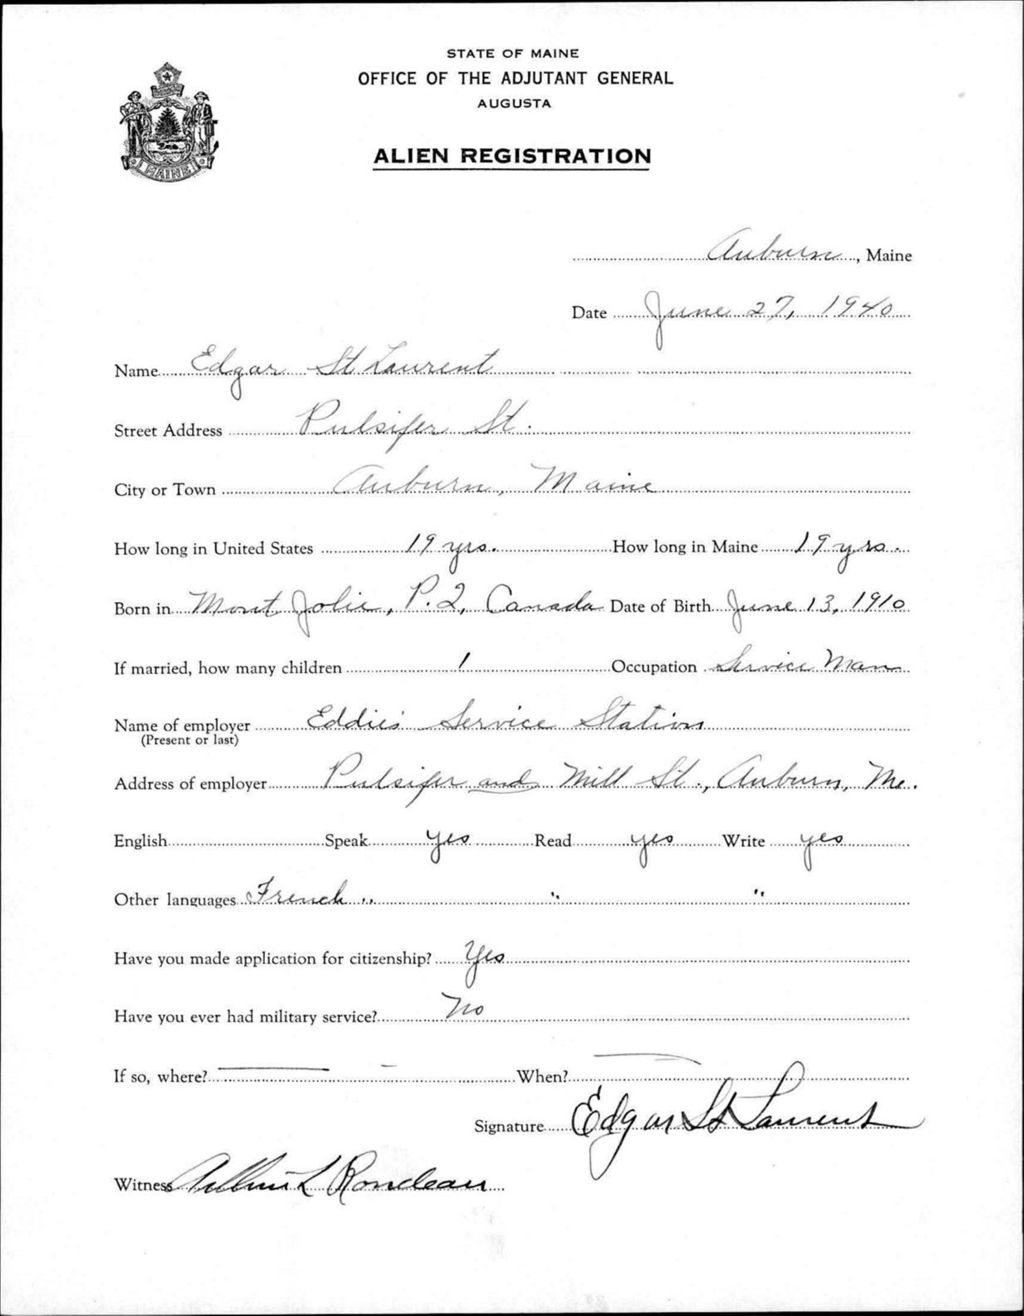 STATE OF MAINE
OFFICE OF THE ADJUTANT GENERAL
AUGUSTA
ALIEN REGISTRATION
MAINE
Auburn, Maine
Date June 27, 1940
Name Edgar St Laurent
Street Address Pulsifer St.
City or Town Auburn, Maine
How long in United States 19 yrs. How long in Maine 19 yrs.
Born in Mont Jolie, P.Q, Canada Date of Birth June 13, 1910
If married, how many children 1 Occupation Service Man
Name of employer Eddie's Service Station
(Present or last)
Address of employer Pulsifer and Mill St., Auburn, Me.
English Speak yes Read yes Write yes
Other languages French " " "
Have you made application for citizenship? Yes
Have you ever had military service? No
If so, where? — - When? —
Signature Edgar St Laurent
Witness L Rondeau